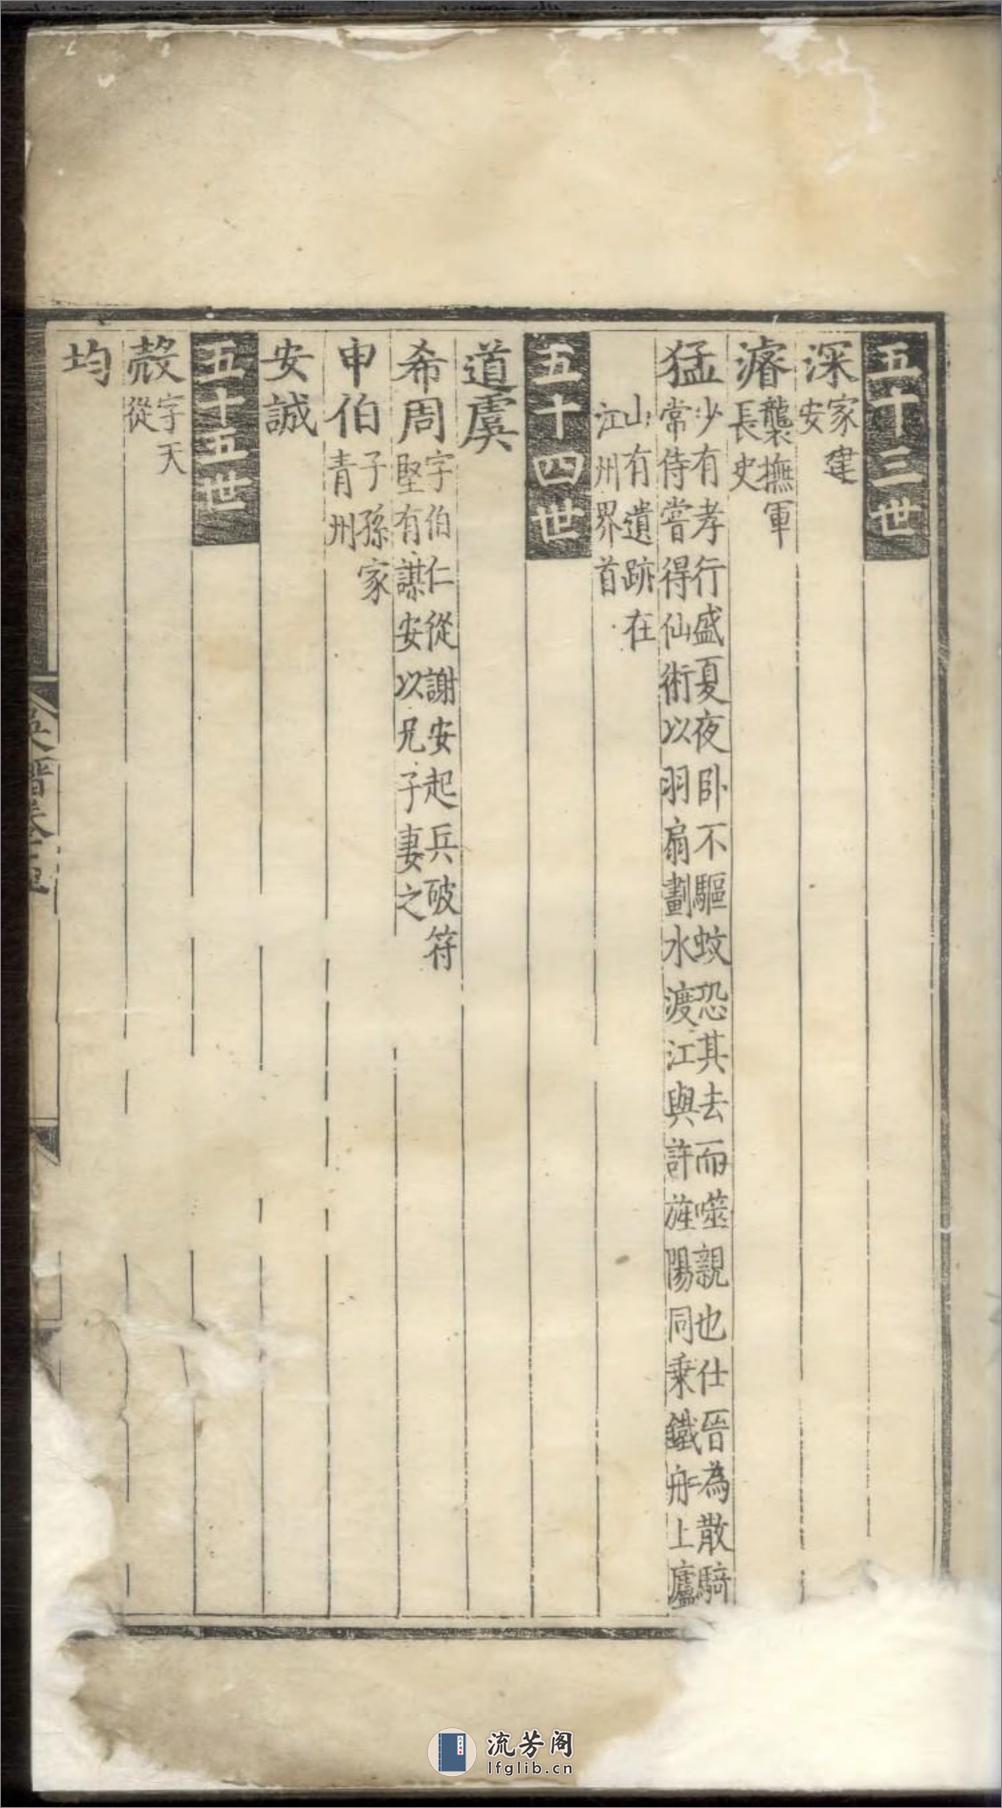 五十三世
深家建
安
濬襲撫軍
長史
猛少有孝行盛夏夜卧不驅蚊恐其去而噬親也仕晉為散騎
常侍嘗得仙術以羽扇劃水渡江與許旌陽同乘鐵舟上廬
山有遺跡在
江州界首
五十四世
道虞
希周字伯仁從謝安起兵破符
堅有謀安以兄子妻之
申伯子孫家
青州
安誠
五十五世
殼字天
從
均
流芳阁
lfglib.cn